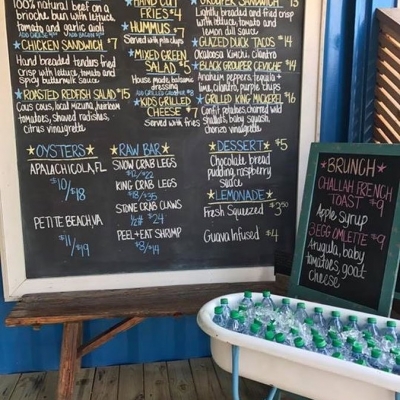 100% natural beef on a
brioche bun with lettuce
tomato and garlic aioli
CHICKEN SANDWICH $7
Hand breaded tenders fried
crisp with lettuce, tomato and
spicy buttermilk sauce
ROASTED REDFISH SALAD $15
Cous cous, local mizuna, heirloom
tomatoes, shaved radishes,
citrus vinaigrette
HAND CUT
FRIES $4
HUMMUS $7
Served with pita chips
MIXED GREEN
SALAD $5
House made balsamic
dressing
KIDS GRILLED
CHEESE $7
Served with fries
GROUPER SANDWICH
Lightly breaded and fried crisp
with lettuce, tomato and
lemon dill sauce
GLAZED DUCK TACOS $14
Okalossa Kimchi, Cilantro
BLACK GROUPER CEVICHE $14
Anaheim peppers, tequila +
lime, cilantro, purple chips
GRILLED KING MACKEREL $16
Confit potatoes, charred wild
shallots, baby squash,
chorizo vinaigrette
OYSTERS
APALACHICOLA, FL
$10/$18
PETITE BEACH, VA
$11/$19
RAW BAR
SNOW CRAB LEGS
$12/$22
KING CRAB LEGS
$18/$35
STONE CRAB CLAWS
1/2# $24
PEEL + EAT SHRIMP
$8/$14
DESSERT $5
Chocolate bread
pudding, raspberry
sauce
LEMONADE
Fresh Squeezed $3.50
Guava Infused $4
BRUNCH
CHALLAH FRENCH
TOAST $9
Apple syrup
3 EGG OMLETTE $9
Arugula, baby
tomatoes, goat
cheese